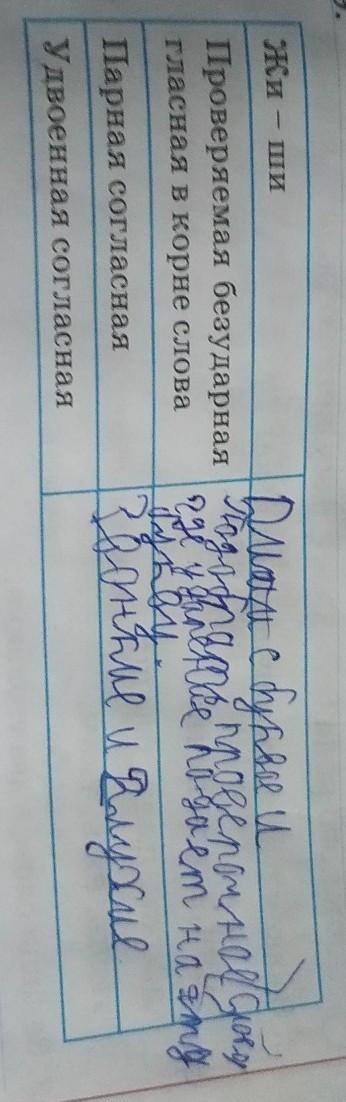 Жи – ши
Пиши с буквой и
Проверяемая безударная
гласная в корне слова
Подобрать проверочное слово
где ударение падает на эту
букву
Парная согласная
Звонкие и глухие
Удвоенная согласная